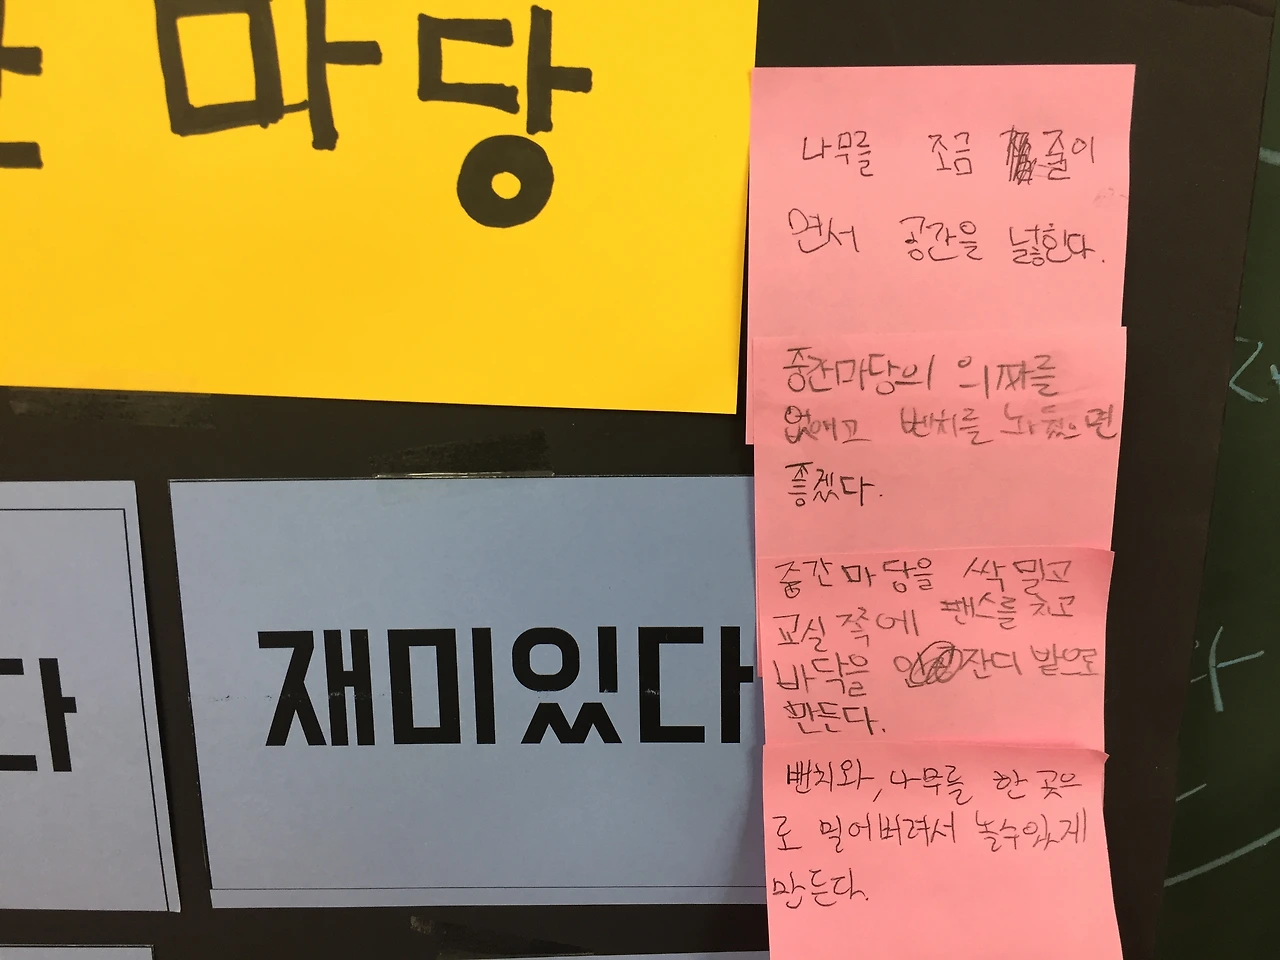 마당
나무를 조금 줄이
면서 공간을 넓힌다.
중간마당의 의짜를
없애고 벤치를 놔뒀으면
좋겠다.
중간마당을 싹 밀고
교실 쪽에 팬스를 치고
바닥을 잔디 밭으로
만든다.
밴치와, 나무를 한 곳으
로 밀어버려서 놀수있게
만든다.
다
재미있다